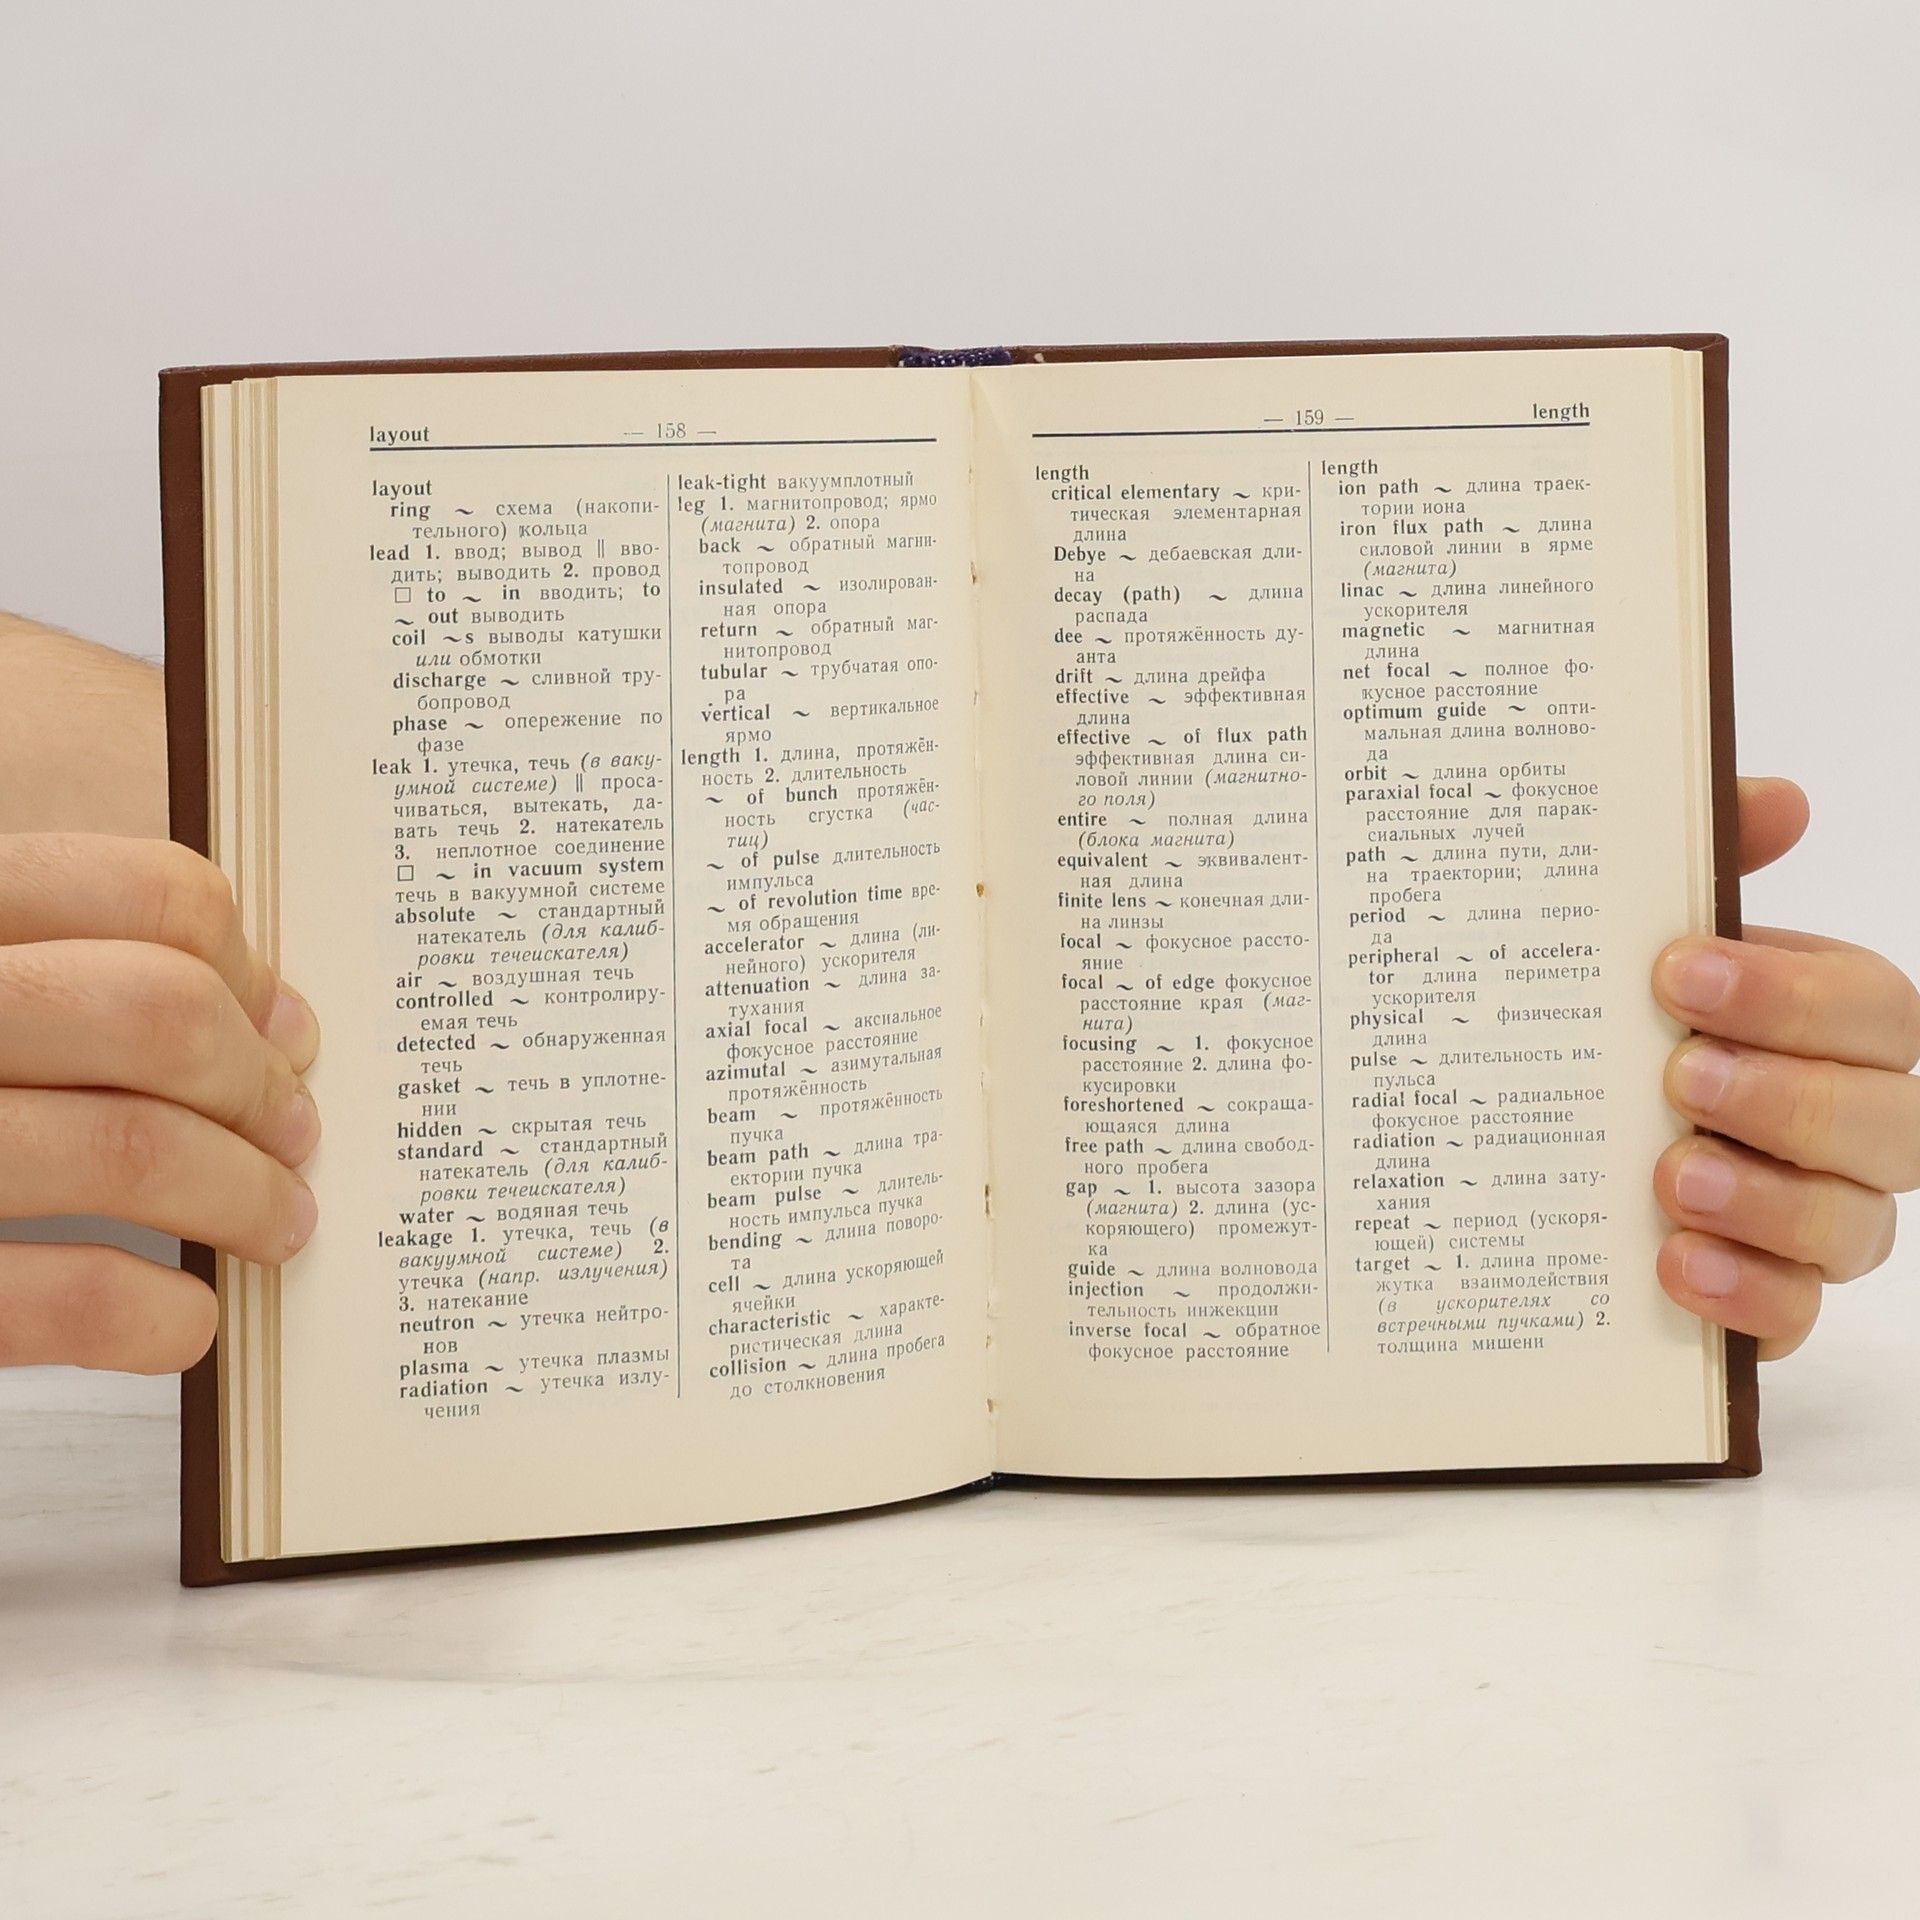 layout — 158 —
layout
ring ~ схема (накопи-
тельного) кольца
lead 1. ввод; вывод || вво-
дить; выводить 2. провод
□ to ~ in вводить; to
~ out выводить
coil ~s выводы катушки
или обмотки
discharge ~ сливной тру-
бопровод
phase ~ опережение по
фазе
leak 1. утечка, течь (в ваку-
умной системе) || проса-
чиваться, вытекать, да-
вать течь 2. натекатель
3. неплотное соединение
□ ~ in vacuum system
течь в вакуумной системе
absolute ~ стандартный
натекатель (для калиб-
ровки течеискателя)
air ~ воздушная течь
controlled ~ контролиру-
емая течь
detected ~ обнаруженная
течь
gasket ~ течь в уплотне-
нии
hidden ~ скрытая течь
standard ~ стандартный
натекатель (для калиб-
ровки течеискателя)
water ~ водяная течь
leakage 1. утечка, течь (в
вакуумной системе) 2.
утечка (напр. излучения)
3. натекание
neutron ~ утечка нейтро-
нов
plasma ~ утечка плазмы
radiation ~ утечка излу-
чения
leak-tight вакуумплотный
leg 1. магнитопровод; ярмо
(магнита) 2. опора
back ~ обратный магни-
топровод
insulated ~ изолирован-
ная опора
return ~ обратный маг-
нитопровод
tubular ~ трубчатая опо-
ра
vertical ~ вертикальное
ярмо
length 1. длина, протяжён-
ность 2. длительность
~ of bunch протяжён-
ность сгустка (час-
тиц)
~ of pulse длительность
импульса
~ of revolution time вре-
мя обращения
accelerator ~ длина (ли-
нейного) ускорителя
attenuation ~ длина за-
тухания
axial focal ~ аксиальное
фокусное расстояние
azimutal ~ азимутальная
протяжённость
beam ~ протяжённость
пучка
beam path ~ длина тра-
ектории пучка
beam pulse ~ длитель-
ность импульса пучка
bending ~ длина поворо-
та
cell ~ длина ускоряющей
ячейки
characteristic ~ характе-
ристическая длина
collision ~ длина пробега
до столкновения
— 159 — length
length
critical elementary ~ кри-
тическая элементарная
длина
Debye ~ дебаевская дли-
на
decay (path) ~ длина
распада
dee ~ протяжённость ду-
анта
drift ~ длина дрейфа
effective ~ эффективная
длина
effective ~ of flux path
эффективная длина си-
ловой линии (магнитно-
го поля)
entire ~ полная длина
(блока магнита)
equivalent ~ эквивалент-
ная длина
finite lens ~ конечная дли-
на линзы
focal ~ фокусное рассто-
яние
focal ~ of edge фокусное
расстояние края (маг-
нита)
focusing ~ 1. фокусное
расстояние 2. длина фо-
кусировки
foreshortened ~ сокраща-
ющаяся длина
free path ~ длина свобод-
ного пробега
gap ~ 1. высота зазора
(магнита) 2. длина (ус-
коряющего) промежут-
ка
guide ~ длина волновода
injection ~ продолжи-
тельность инжекции
inverse focal ~ обратное
фокусное расстояние
length
ion path ~ длина траек-
тории иона
iron flux path ~ длина
силовой линии в ярме
(магнита)
linac ~ длина линейного
ускорителя
magnetic ~ магнитная
длина
net focal ~ полное фо-
кусное расстояние
optimum guide ~ опти-
мальная длина волново-
да
orbit ~ длина орбиты
paraxial focal ~ фокусное
расстояние для парак-
сиальных лучей
path ~ длина пути, дли-
на траектории; длина
пробега
period ~ длина перио-
да
peripheral ~ of accelera-
tor длина периметра
ускорителя
physical ~ физическая
длина
pulse ~ длительность им-
пульса
radial focal ~ радиальное
фокусное расстояние
radiation ~ радиационная
длина
relaxation ~ длина зату-
хания
repeat ~ период (ускоря-
ющей) системы
target ~ 1. длина проме-
жутка взаимодействия
(в ускорителях со
встречными пучками) 2.
толщина мишени